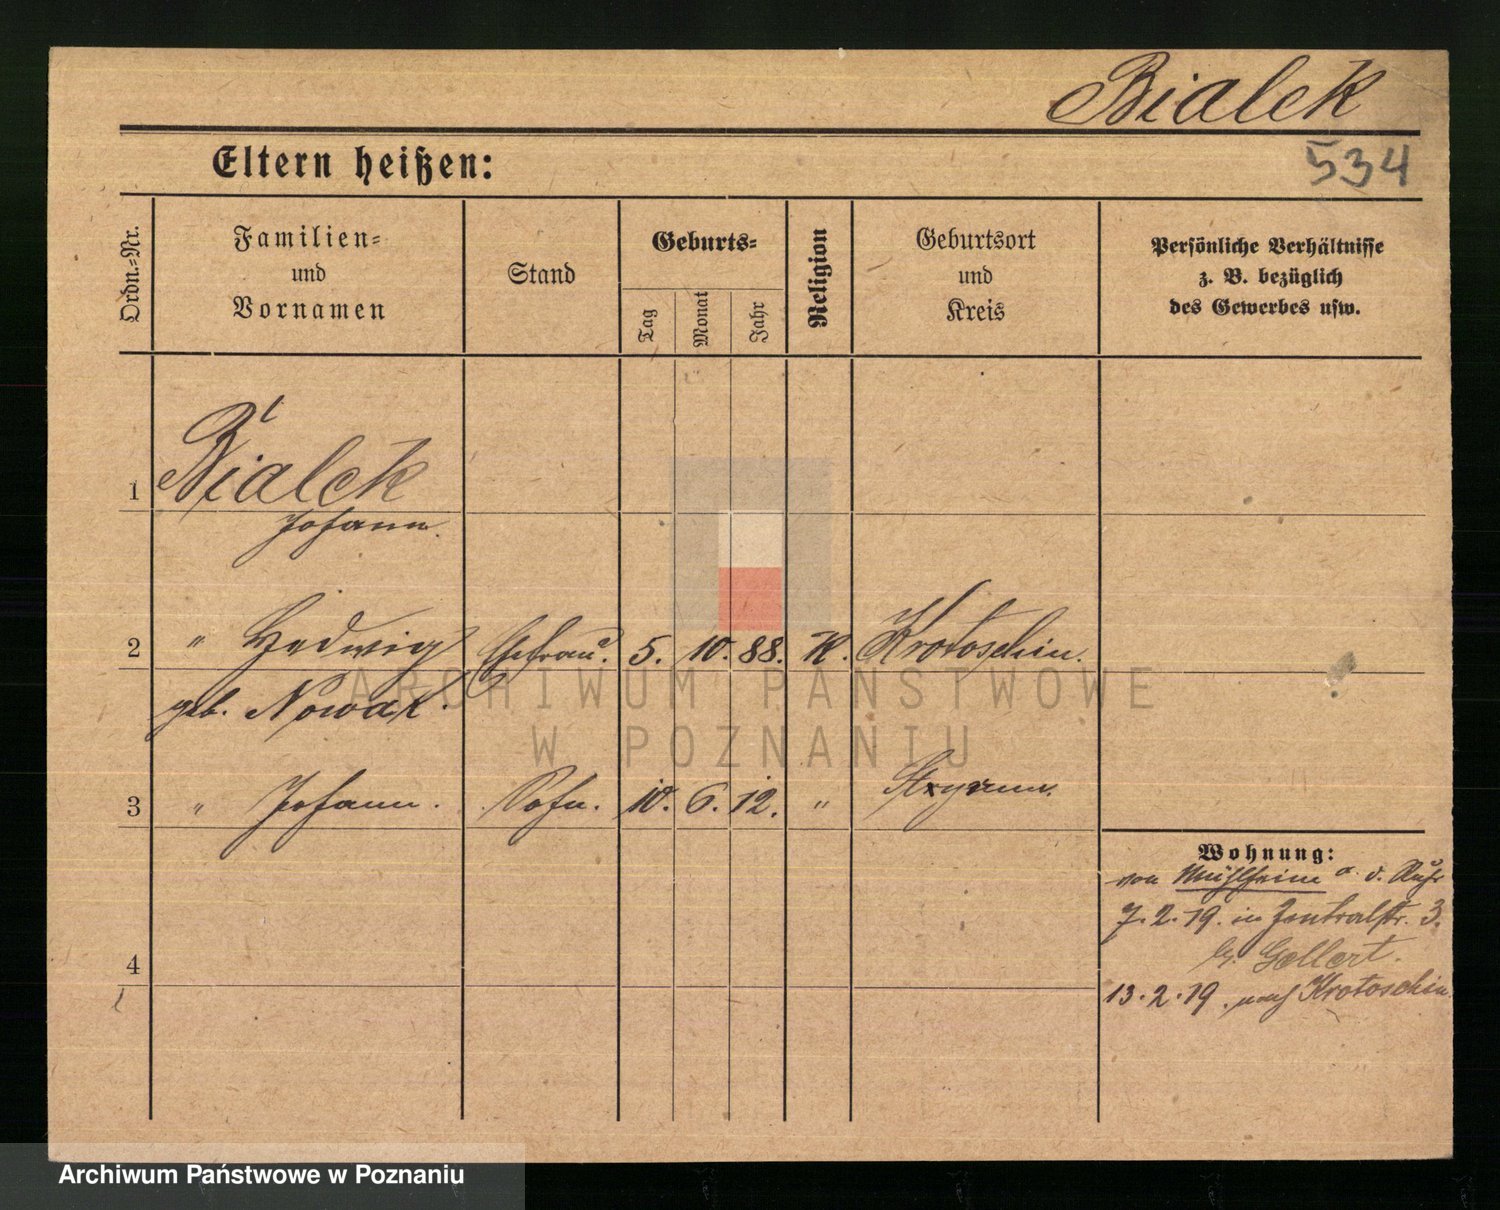 Bialek
Eltern heißen:
534
Ordn.=Nr.
Familien=
und
Vornamen
Stand
Geburts=
Tag
Monat
Jahr
Religion
Geburtsort
und
Kreis
Persönliche Verhältnisse
z. B. bezüglich
des Gewerbes usw.
1 Bialek
Johann.
2 " Hedwig Ehefrau. 5. 10. 88. K. Krotoschin.
geb. Nowak.
3 " Johann. Sohn. 10. 6. 12. "
Wohnung:
von Mühlheim a. d. Ruhr
7.2.19. in Zentralstr. 3.
bei Gellert.
13.2.19. nach Krotoschin.
4
ARCHIWUM PAŃSTWOWE
W POZNANIU
Archiwum Państwowe w Poznaniu